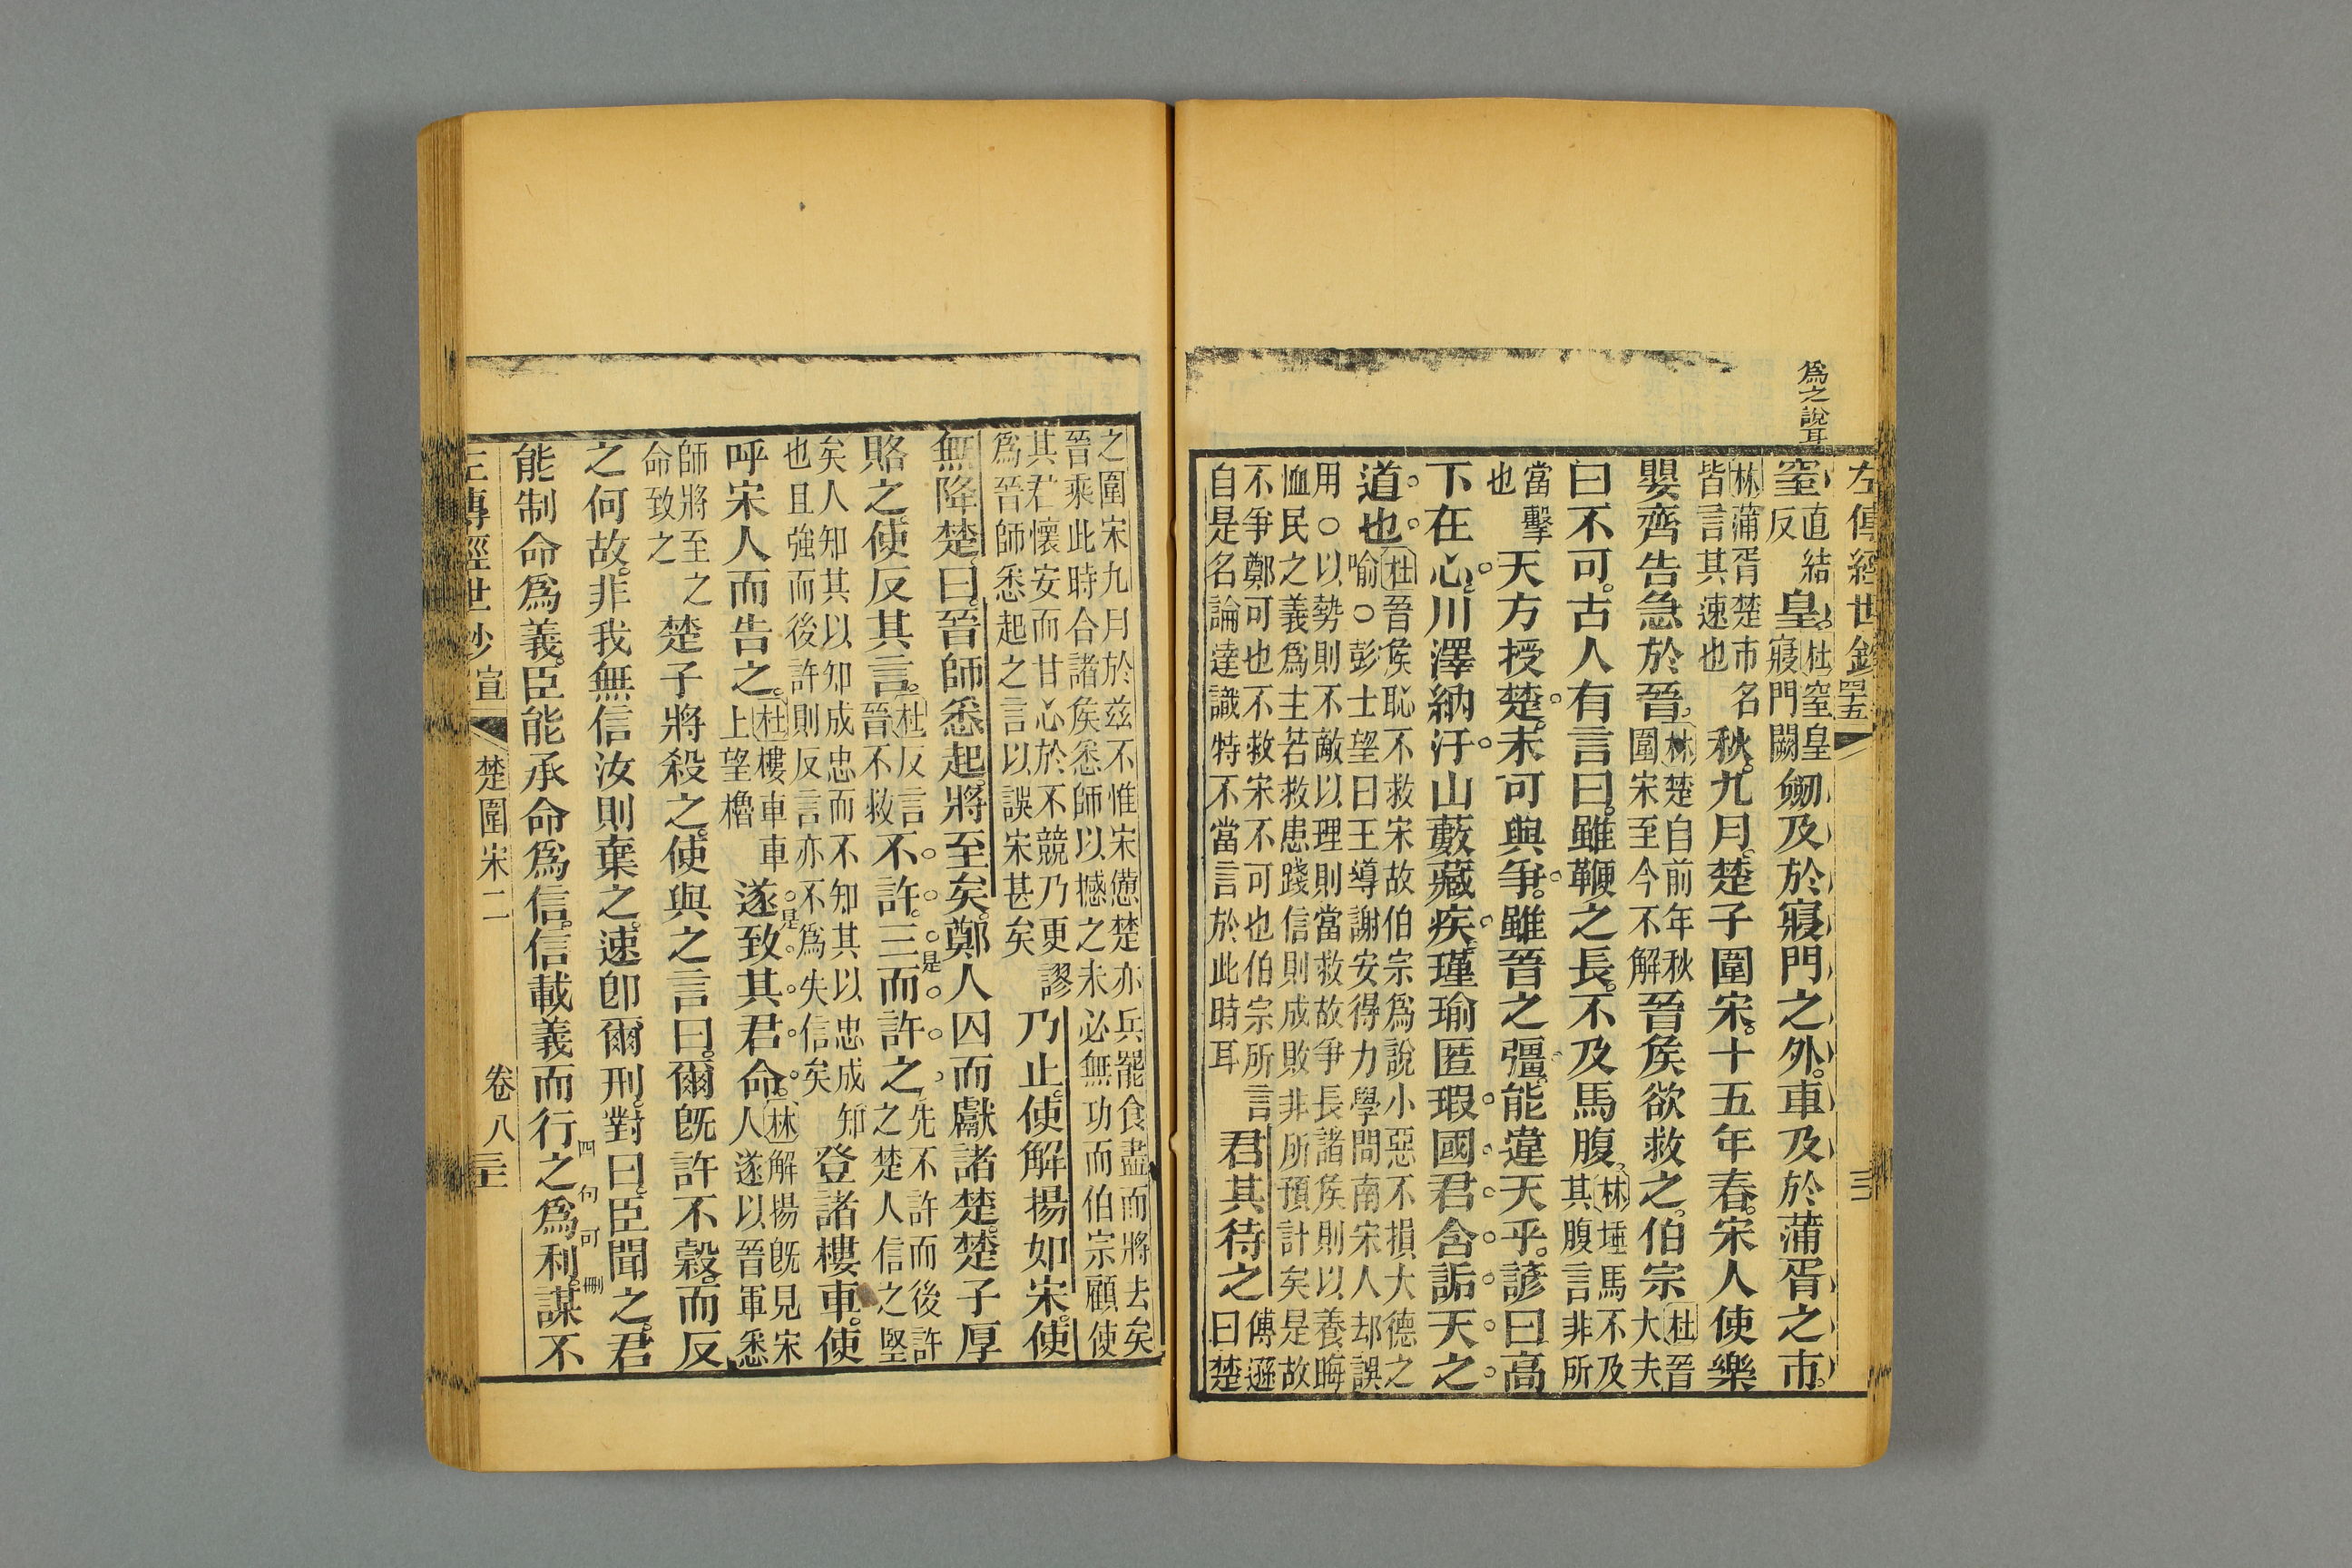 為之說耳
左傳經世鈔 四五 三
窒直結反皇。杜窒皇寢門闕劒及於寢門之外。車及於蒲胥之市。
林蒲胥楚市名皆言其速也秋。九月。楚子圍宋。十五年春。宋人使樂
嬰齊告急於晉。林楚自前年秋圍宋至今不解晉矦欲救之。伯宗杜晉大夫
曰不可。古人有言曰。雖鞭之長。不及馬腹。林棰馬不及其腹言非所
當擊也天方授楚。未可與爭。雖晉之彊。能違天乎。諺曰高
下在心。川澤納汙山藪藏疾。瑾瑜匿瑕國君含詬天之
道也。杜晉矦恥不救宋故伯宗為說小惡不損大德之喻○彭士望曰王導謝安得力學問南宋人却誤
用○以勢則不敵以理則當救故爭長諸矦則以養晦恤民之義為主若救患踐信則成敗非所預計矣是故
不爭鄭可也不救宋不可也伯宗所言自是名論達識特不當言於此時耳君其待之傅遜曰楚
之圍宋九月於茲不惟宋憊楚亦兵罷食盡而將去矣晉乘此時合諸矦悉師以撼之未必無功而伯宗顧使
其君懷安而甘心於不競乃更謬為晉師悉起之言以誤宋甚矣乃止。使解揚如宋。使
無降楚。曰。晉師悉起。將至矣。鄭人囚而獻諸楚。楚子厚
賂之。使反其言。杜反言晉不救不許。三而許之。先不許而後許之楚人信之堅
是
矣人知其以知成忠而不知其以忠成知也且強而後許則反言亦不為失信矣登諸樓車。使
呼宋人而告之。杜樓車車上望櫓遂致其君命。林解揚旣見宋人遂以晉軍悉
是
師將至之命致之楚子將殺之。使與之言曰。爾旣許不穀。而反
之何故。非我無信汝則棄之。速卽爾刑。對曰。臣聞之。君
能制命為義。臣能承命為信。信載義而行之為利。謀不
四句可刪
左傳經世鈔 宣 楚圍宋二 卷八 三